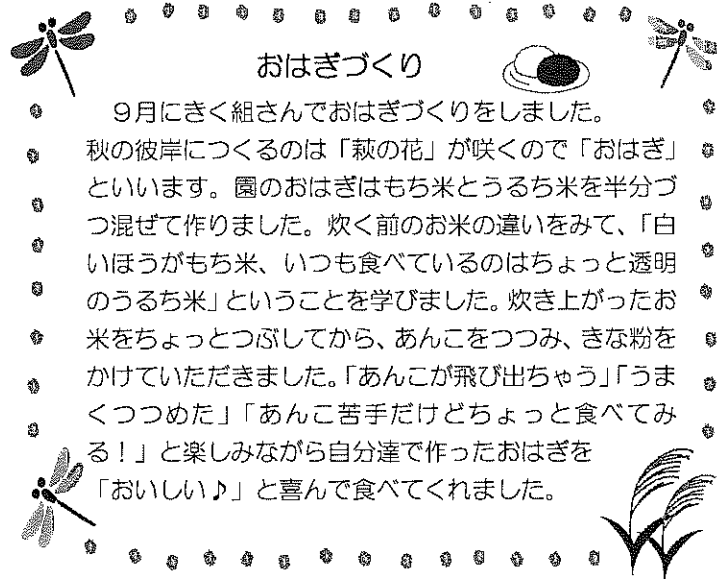 おはぎづくり
9月にきく組さんでおはぎづくりをしました。
秋の彼岸につくるのは「萩の花」が咲くので「おはぎ」
といいます。園のおはぎはもち米とうるち米を半分づ
つ混ぜて作りました。炊く前のお米の違いをみて、「白
いほうがもち米、いつも食べているのはちょっと透明
のうるち米」ということを学びました。炊き上がったお
米をちょっとつぶしてから、あんこをつつみ、きな粉を
かけていただきました。「あんこが飛び出ちゃう」「うま
くつつめた」「あんこ苦手だけどちょっと食べてみ
る！」と楽しみながら自分達で作ったおはぎを
「おいしい♪」と喜んで食べてくれました。